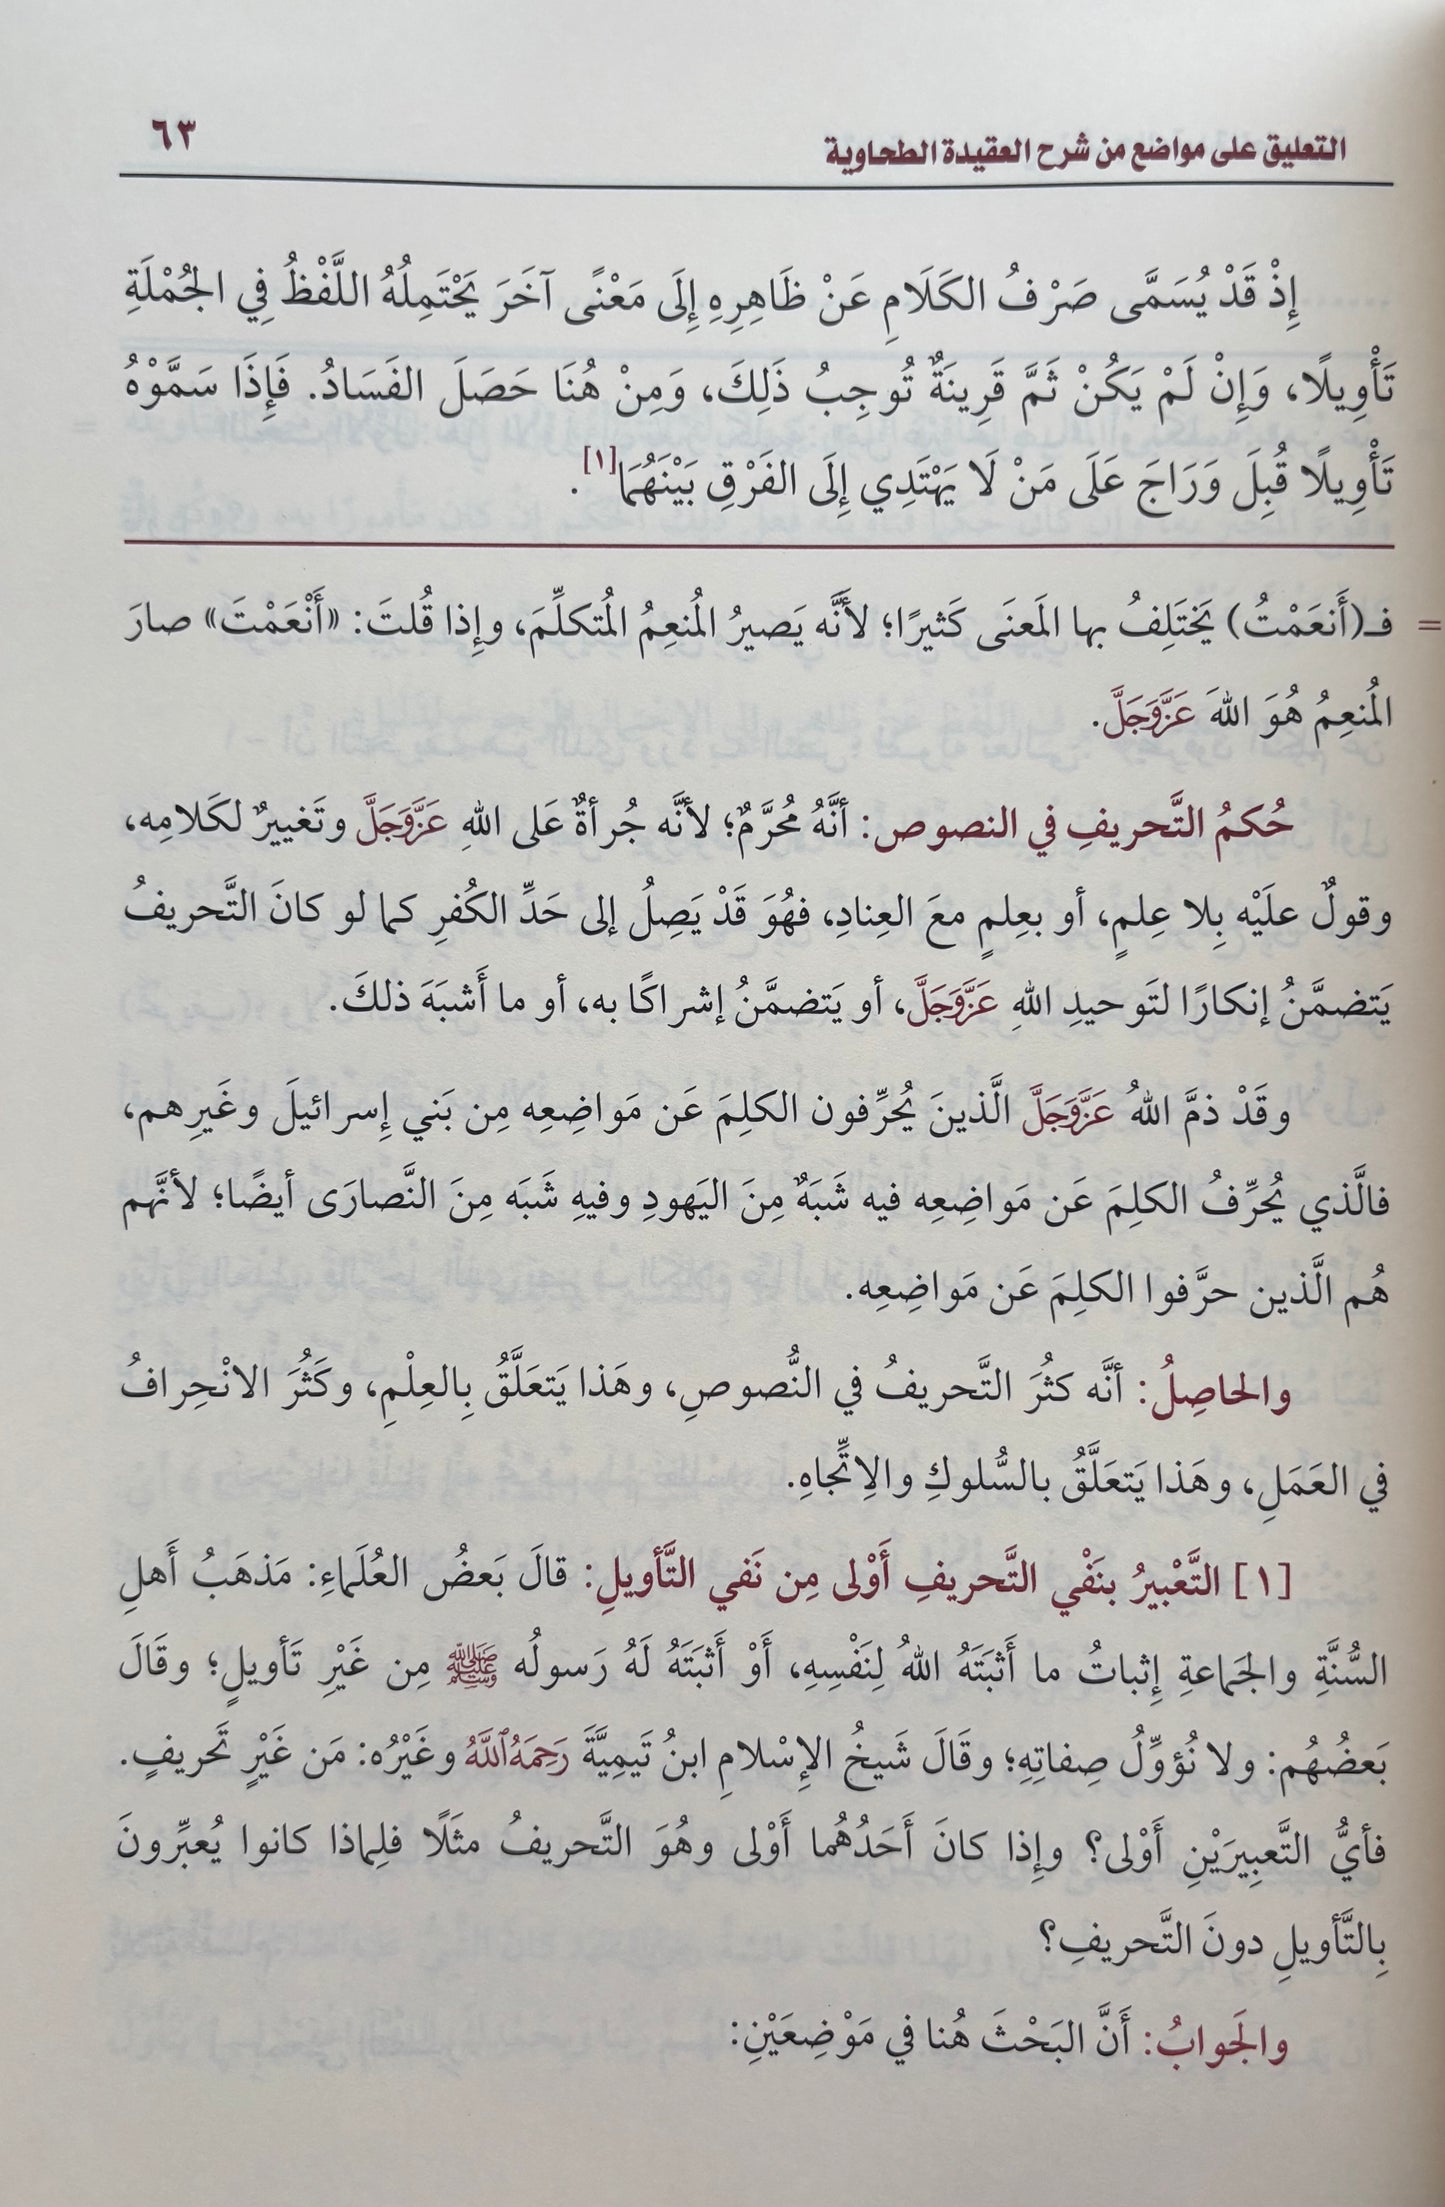 التعليق على مواضع من شرح العقيدة الطحاوية
٦٣
إِذْ قَدْ يُسَمَّى صَرْفُ الكَلَامِ عَنْ ظَاهِرِهِ إِلَى مَعْنًى آخَرَ يَحْتَمِلُهُ اللَّفْظُ فِي الجُمْلَةِ
تَأْوِيلًا، وَإِنْ لَمْ يَكُنْ ثَمَّ قَرِينَةٌ تُوجِبُ ذَلِكَ، وَمِنْ هُنَا حَصَلَ الفَسَادُ. فَإِذَا سَمَّوْهُ
تَأْوِيلًا قُبِلَ وَرَاجَ عَلَى مَنْ لَا يَهْتَدِي إِلَى الفَرْقِ بَيْنَهُمَا[١].
= فـ(أَنعَمْتُ) يَختَلِفُ بها المَعنَى كَثيرًا؛ لأَنَّه يَصيرُ المُنعِمُ المُتكلِّمَ، وإِذا قُلتَ: «أَنْعَمْتَ» صارَ
المُنعِمُ هُوَ اللهَ عَزَّوَجَلَّ.
حُكمُ التَّحريفِ في النصوص: أنَّهُ مُحرَّمٌ؛ لأنَّه جُرأةٌ عَلى اللهِ عَزَّوَجَلَّ وتَغييرٌ لكَلامِه،
وقولٌ علَيْه بِلا عِلمٍ، أو بعِلمٍ معَ العِنادِ، فهُوَ قَدْ يَصِلُ إلى حَدِّ الكُفرِ كما لو كانَ التَّحريفُ
يَتضمَّنُ إنكارًا لتَوحيدِ اللهِ عَزَّوَجَلَّ، أو يَتضمَّنُ إشراكًا به، أو ما أَشبَهَ ذلكَ.
وقَدْ ذمَّ اللهُ عَزَّوَجَلَّ الَّذينَ يُحرِّفون الكلِمَ عَن مَواضِعِه مِن بَني إِسرائيلَ وغَيرِهم،
فالَّذي يُحرِّفُ الكلِمَ عَن مَواضِعِه فيه شَبَهٌ مِنَ اليَهودِ وفيهِ شَبَه مِنَ النَّصارَى أيضًا؛ لأنَّهم
هُم الَّذين حرَّفوا الكلِمَ عَن مَواضِعِه.
والحاصِلُ: أنَّه كثُرَ التَّحريفُ في النُّصوصِ، وهَذا يَتعَلَّقُ بِالعِلْمِ، وكَثُرَ الانْحِرافُ
في العَمَلِ، وهَذا يَتعَلَّقُ بالسُّلوكِ والاِتِّجاهِ.
[١] التَّعْبيرُ بنَفْي التَّحريفِ أَوْلى مِن نَفي التَّأويلِ: قالَ بَعضُ العُلَماءِ: مَذهَبُ أَهلِ
السُّنَّةِ والجَماعةِ إِثباتُ ما أَثبَتَهُ اللهُ لِنَفْسِهِ، أَوْ أَثبَتَهُ لَهُ رَسولُه ﷺ مِن غَيْرِ تَأويلٍ؛ وقَالَ
بَعضُهُم: ولا نُؤوِّلُ صِفاتِهِ؛ وقَالَ شَيخُ الإِسْلامِ ابنُ تَيمِيَّةَ رَحِمَهُ ٱللَّهُ وغَيْرُه: مَن غَيْرِ تَحريفٍ.
فأيُّ التَّعبِيرَيْنِ أَوْلى؟ وإِذا كانَ أَحَدُهُما أَوْلى وهُوَ التَّحريفُ مثَلًا فلِماذا كانوا يُعبِّرونَ
بِالتَّأويلِ دونَ التَّحريفِ؟
والجَوابُ: أَنَّ البَحْثَ هُنا في مَوْضِعَيْنِ: